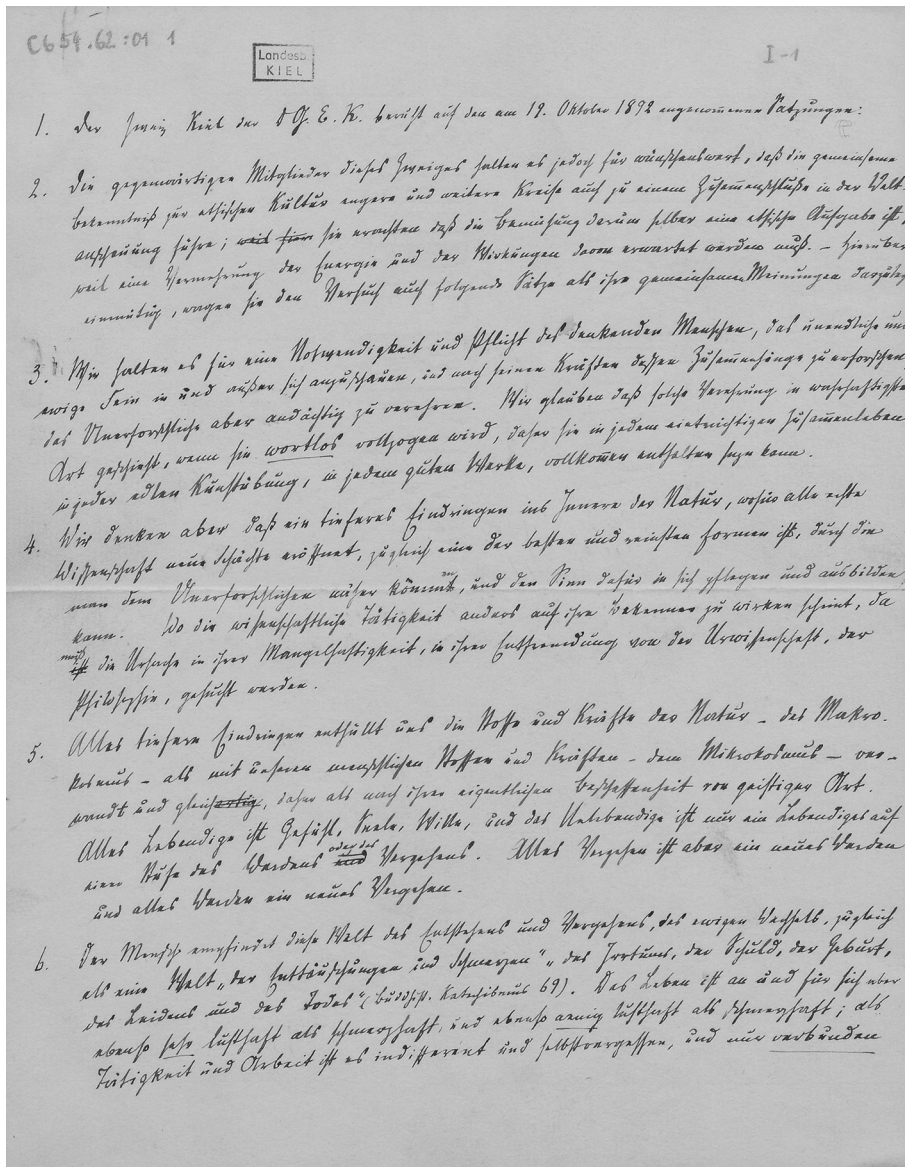 Cb 54.62:01 1
Landesb.
KIEL
I-1
1. Der Zweig Kiel der D. G. E. K. beruht auf den am 19. Oktober 1892 angenommenen Satzungen:
2. Die gegenwärtigen Mitglieder dieses Zweiges halten es jedoch für wünschenswert, daß die gemeinsame
Bekenntniß zur ethischen Kultur engere und weitere Kreise auch zu einem Zusammenschluße in der Welt-
anschauung führe; weil hier sie erachten daß die Bemühung darum selber eine ethische Aufgabe ist,
weil eine Vermehrung der Energie und der Wirkungen davon erwartet werden muß. – Hierüber
einmütig, wagen sie den Versuch auch folgende Sätze als ihre gemeinsamen Meinungen darzulegen
3. Wir halten es für eine Notwendigkeit und Pflicht des denkenden Menschen, das unendliche und
ewige Sein in und außer sich anzuschauen, und nach seinen Kräften dessen Zusammenhänge zu erforschen
das Unerforschliche aber andächtig zu verehren. Wir glauben daß solche Verehrung in wahrhaftigster
Art geschieht, wenn sie wortlos vollzogen wird, daher sie in jedem einträchtigen Zusammenleben
in jeder edlen Kunstübung, in jedem guten Werke, vollkommen enthalten sein kann.
4. Wir denken aber daß ein tieferes Eindringen ins Innere der Natur, wozu alle echte
Wissenschaft neue Schächte eröffnet, zugleich eine der besten und reinsten Formen ist, durch die
man dem Unerforschlichen näher kommen, und den Sinn dafür in sich pflegen und ausbilden
kann. Wo die wissenschaftliche Tätigkeit anders auf ihre Bekenner zu wirken scheint, da
muß
ist die Ursache in ihrer Mangelhaftigkeit, in ihrer Entfremdung von der Urwissenschaft, der
Philosophie, gesucht werden.
5. Alles tiefere Eindringen enthüllt uns die Stoffe und Kräfte der Natur – des Makro-
kosmus – als mit unseren menschlichen Stoffen und Kräften – dem Mikrokosmus – ver-
wandt und gleichartig, daher als nach ihrer eigentlichen Beschaffenheit von geistiger Art.
Alles Lebendige ist Gefühl, Seele, Wille, und das Unlebendige ist nur ein Lebendiges auf
oder des
einer Stufe des Werdens und Vergehens. Alles Vergehen ist aber ein neues Werden
und alles Werden ein neues Vergehen.
6. Der Mensch empfindet diese Welt des Entstehens und Vergehens, des ewigen Wechsels, zugleich
als eine Welt „der Enttäuschungen und Schmerzen“ „des Irrtums, der Schuld, der Geburt,
des Leidens und des Todes“ (Buddhist. Katechismus 69). Das Leben ist an und für sich aber
ebenso sehr lusthaft als schmerzhaft, und ebenso wenig lusthaft als schmerzhaft; als
Tätigkeit und Arbeit ist es indifferent und selbstvergessen, und nur verbunden